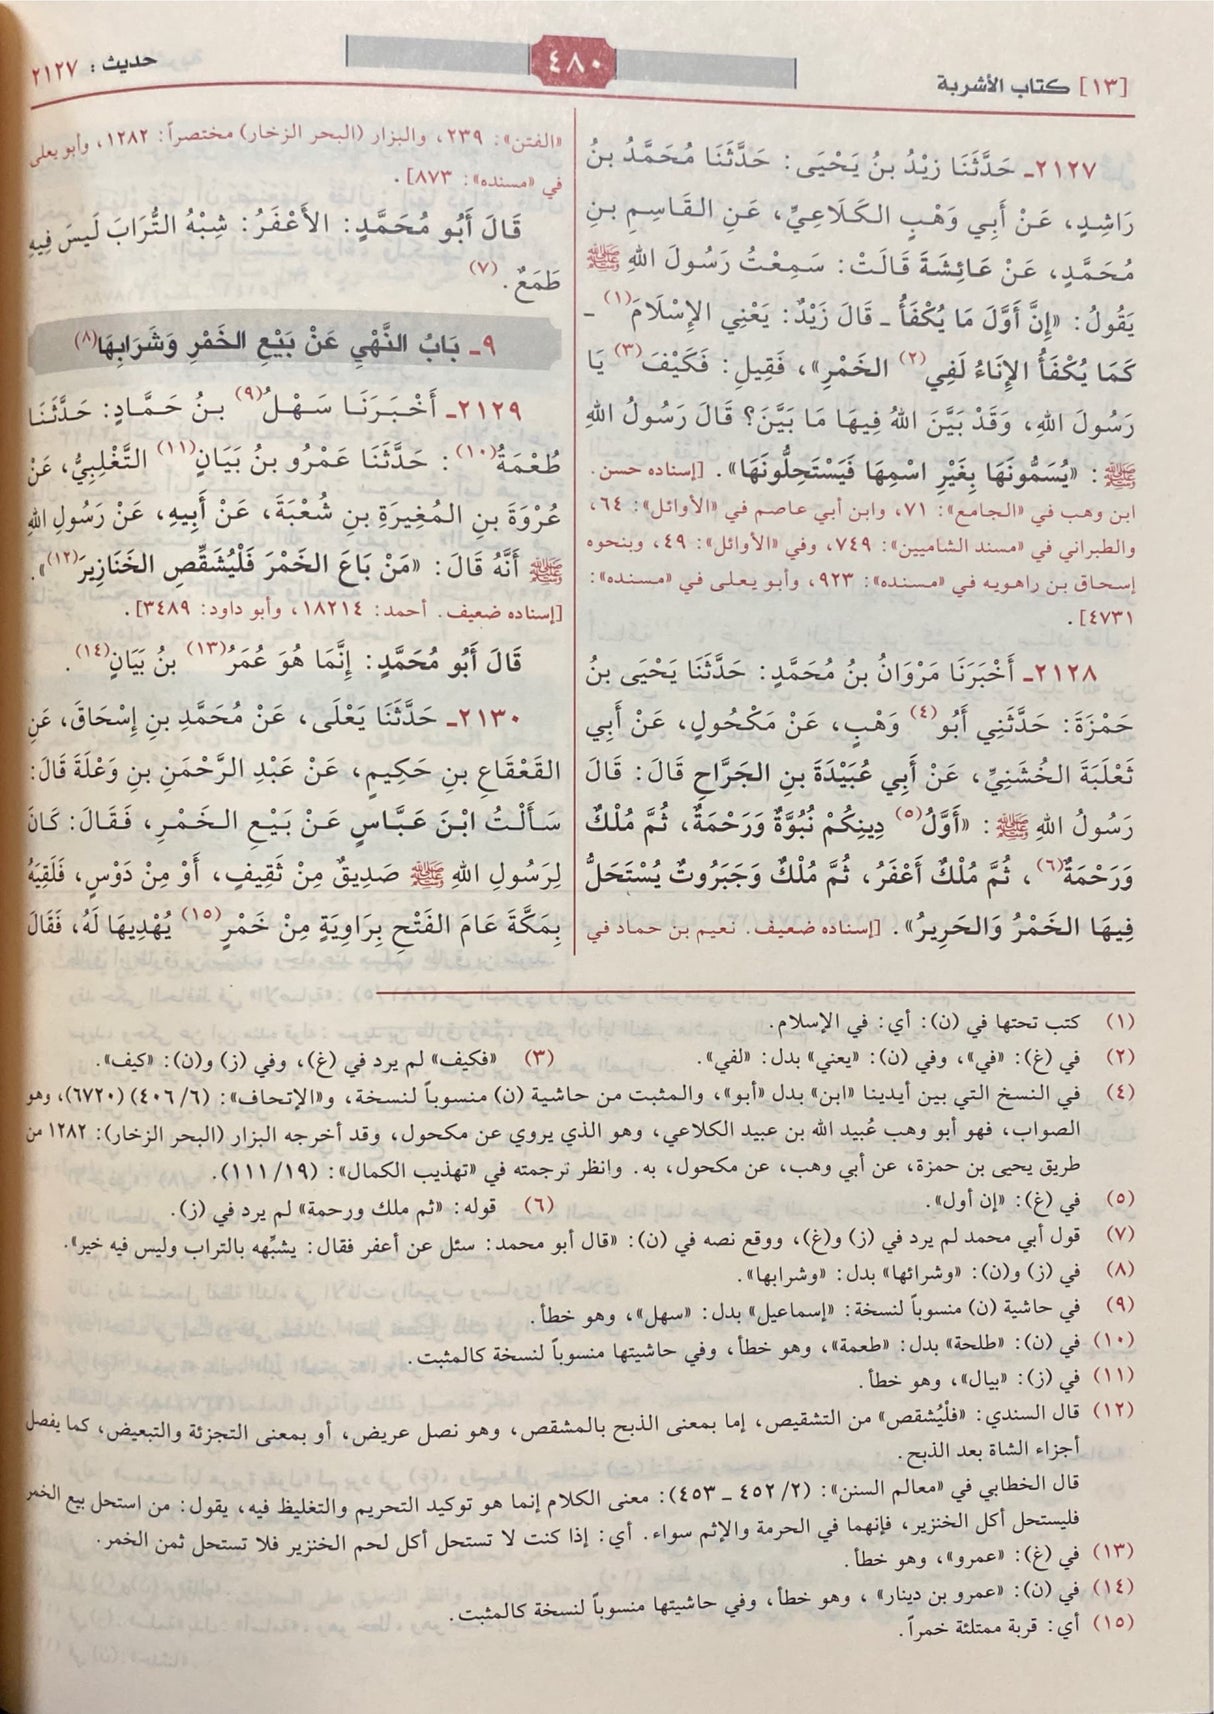 [١٣] كتاب الأشربة
٤٨٠
حديث : ٢١٢٧
٢١٢٧ـ حَدَّثَنَا زَيْدُ بنُ يَحْيَى: حَدَّثَنَا مُحَمَّدُ بنُ
رَاشِدٍ، عَنْ أَبِي وَهْبٍ الكَلَاعِيِّ، عَنِ القَاسِمِ بنِ
مُحَمَّدٍ، عَنْ عَائِشَةَ قَالَتْ: سَمِعْتُ رَسُولَ اللهِ ﷺ
يَقُولُ: «إِنَّ أَوَّلَ مَا يُكْفَأُ ـ قَالَ زَيْدٌ: يَعْنِي الإِسْلَامَ(١) ـ
كَمَا يُكْفَأُ الإِنَاءُ لَفِي(٢) الخَمْرِ»، فَقِيلَ: فَكَيْفَ(٣) يَا
رَسُولَ اللهِ، وَقَدْ بَيَّنَ اللهُ فِيهَا مَا بَيَّنَ؟ قَالَ رَسُولُ اللهِ
ﷺ: «يُسَمُّونَهَا بِغَيْرِ اسْمِهَا فَيَسْتَحِلُّونَهَا». [إسناده حسن.
ابن وهب في «الجامع»: ٧١، وابن أبي عاصم في «الأوائل»: ٦٤،
والطبراني في «مسند الشاميين»: ٧٤٩، وفي «الأوائل»: ٤٩، وبنحوه
إسحاق بن راهويه في «مسنده»: ٩٢٣، وأبو يعلى في «مسنده»:
٤٧٣١].
٢١٢٨ـ أَخْبَرَنَا مَرْوَانُ بنُ مُحَمَّدٍ: حَدَّثَنَا يَحْيَى بنُ
حَمْزَةَ: حَدَّثَنِي أَبُو(٤) وَهْبٍ، عَنْ مَكْحُولٍ، عَنْ أَبِي
ثَعْلَبَةَ الخُشَنِيِّ، عَنْ أَبِي عُبَيْدَةَ بنِ الجَرَّاحِ قَالَ: قَالَ
رَسُولُ اللهِ ﷺ: «أَوَّلُ(٥) دِينِكُمْ نُبُوَّةٌ وَرَحْمَةٌ، ثُمَّ مُلْكٌ
وَرَحْمَةٌ(٦)، ثُمَّ مُلْكٌ أَعْفَرُ، ثُمَّ مُلْكٌ وَجَبَرُوتٌ يُسْتَحَلُّ
فِيهَا الخَمْرُ وَالحَرِيرُ». [إسناده ضعيف. نعيم بن حماد في
«الفتن»: ٢٣٩، والبزار (البحر الزخار) مختصراً: ١٢٨٢، وأبو يعلى
في «مسنده»: ٨٧٣].
قَالَ أَبُو مُحَمَّدٍ: الأَعْفَرُ: شِبْهُ التُّرَابَ لَيسَ فِيهِ
طَمَعٌ.(٧)
٩ـ بَابُ النَّهْيِ عَنْ بَيْعِ الخَمْرِ وَشَرَابِهَا(٨)
٢١٢٩ـ أَخْبَرَنَا سَهْلُ(٩) بنُ حَمَّادٍ: حَدَّثَنَا
طُعْمَةُ(١٠): حَدَّثَنَا عَمْرُو بنُ بَيَانٍ(١١) التَّغْلِبِيُّ، عَنْ
عُرْوَةَ بنِ المُغِيرَةِ بنِ شُعْبَةَ، عَنْ أَبِيهِ، عَنْ رَسُولِ اللهِ
ﷺ أَنَّهُ قَالَ: «مَنْ بَاعَ الخَمْرَ فَلْيُشَقِّصِ الخَنَازِيرَ(١٢)».
[إسناده ضعيف. أحمد: ١٨٢١٤، وأبو داود: ٣٤٨٩].
قَالَ أَبُو مُحَمَّدٍ: إِنَّمَا هُوَ عُمَرُ(١٣) بنُ بَيَانٍ(١٤).
٢١٣٠ـ حَدَّثَنَا يَعْلَى، عَنْ مُحَمَّدِ بنِ إِسْحَاقَ، عَنِ
القَعْقَاعِ بنِ حَكِيمٍ، عَنْ عَبْدِ الرَّحْمَنِ بنِ وَعْلَةَ قَالَ:
سَأَلْتُ ابْنَ عَبَّاسٍ عَنْ بَيْعِ الخَمْرِ، فَقَالَ: كَانَ
لِرَسُولِ اللهِ ﷺ صَدِيقٌ مِنْ ثَقِيفٍ، أَوْ مِنْ دَوْسٍ، فَلَقِيَهُ
بِمَكَّةَ عَامَ الفَتْحِ بِرَاوِيَةٍ مِنْ خَمْرٍ(١٥) يُهْدِيهَا لَهُ، فَقَالَ
(١) كتب تحتها في (ن): أي: في الإسلام.
(٢) في (غ): «في»، وفي (ن): «يعني» بدل: «لفي». (٣) «فكيف» لم يرد في (غ)، وفي (ز) و(ن): «كيف».
(٤) في النسخ التي بين أيدينا «ابن» بدل «أبو»، والمثبت من حاشية (ن) منسوباً لنسخة، و«الإتحاف»: (٦/ ٤٠٦) (٦٧٢٠)، وهو
الصواب، فهو أبو وهب عُبيد الله بن عبيد الكلاعي، وهو الذي يروي عن مكحول، وقد أخرجه البزار (البحر الزخار): ١٢٨٢ من
طريق يحيى بن حمزة، عن أبي وهب، عن مكحول، به. وانظر ترجمته في «تهذيب الكمال»: (١٩/ ١١١).
(٥) في (غ): «إن أول». (٦) قوله: «ثم ملك ورحمة» لم يرد في (ز).
(٧) قول أبي محمد لم يرد في (ز) و(غ)، ووقع نصه في (ن): «قال أبو محمد: سئل عن أعفر فقال: يشبِّهه بالتراب وليس فيه خير».
(٨) في (ز) و(ن): «وشرائها» بدل: «وشرابها».
(٩) في حاشية (ن) منسوباً لنسخة: «إسماعيل» بدل: «سهل»، وهو خطأ.
(١٠) في (ن): «طلحة» بدل: «طعمة»، وهو خطأ، وفي حاشيتها منسوباً لنسخة كالمثبت.
(١١) في (ز): «بيال»، وهو خطأ.
(١٢) قال السندي: «فلْيُشقص» من التشقيص، إما بمعنى الذبح بالمشقص، وهو نصل عريض، أو بمعنى التجزئة والتبعيض، كما يفصل
أجزاء الشاة بعد الذبح.
قال الخطابي في «معالم السنن»: (٢/ ٤٥٢ ـ ٤٥٣): معنى الكلام إنما هو توكيد التحريم والتغليظ فيه، يقول: من استحل بيع الخمر
فليستحل أكل الخنزير، فإنهما في الحرمة والإثم سواء. أي: إذا كنت لا تستحل أكل لحم الخنزير فلا تستحل ثمن الخمر.
(١٣) في (غ): «عمرو»، وهو خطأ.
(١٤) في (ن): «عمرو بن دينار»، وهو خطأ، وفي حاشيتها منسوباً لنسخة كالمثبت.
(١٥) أي: قربة ممتلئة خمراً.